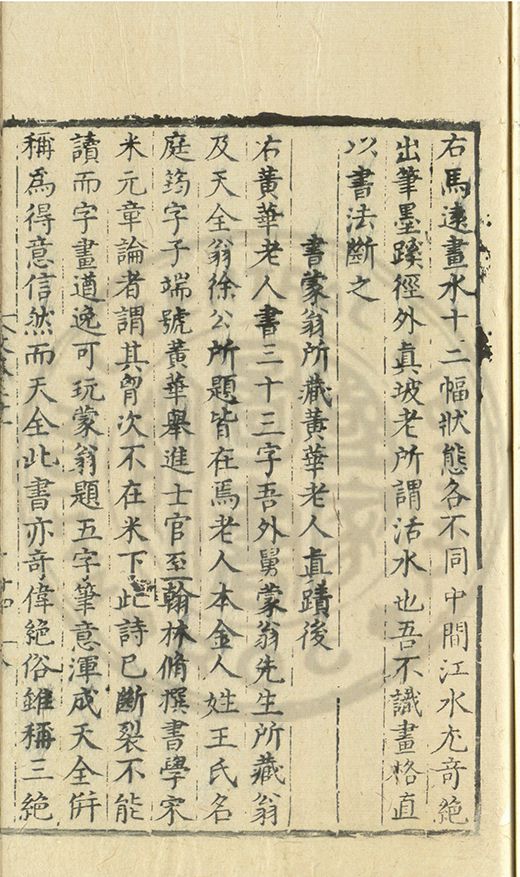 右馬遠畫水十二幅狀態各不同中間江水尤竒絕
出筆墨蹊徑外真坡老所謂活水也吾不識畫格直
以書法斷之
書蒙翁所藏黃華老人真蹟後
右黃華老人書三十三字吾外舅蒙翁先生所藏翁
及天全翁徐公所題皆在焉老人本金人姓王氏名
庭筠字子端號黃華舉進士官至翰林脩撰書學宋
米元章論者謂其胷次不在米下此詩已斷裂不能
讀而字畫遒逸可玩蒙翁題五字筆意渾成天全併
稱為得意信然而天全此書亦竒偉絕俗雖稱三絕